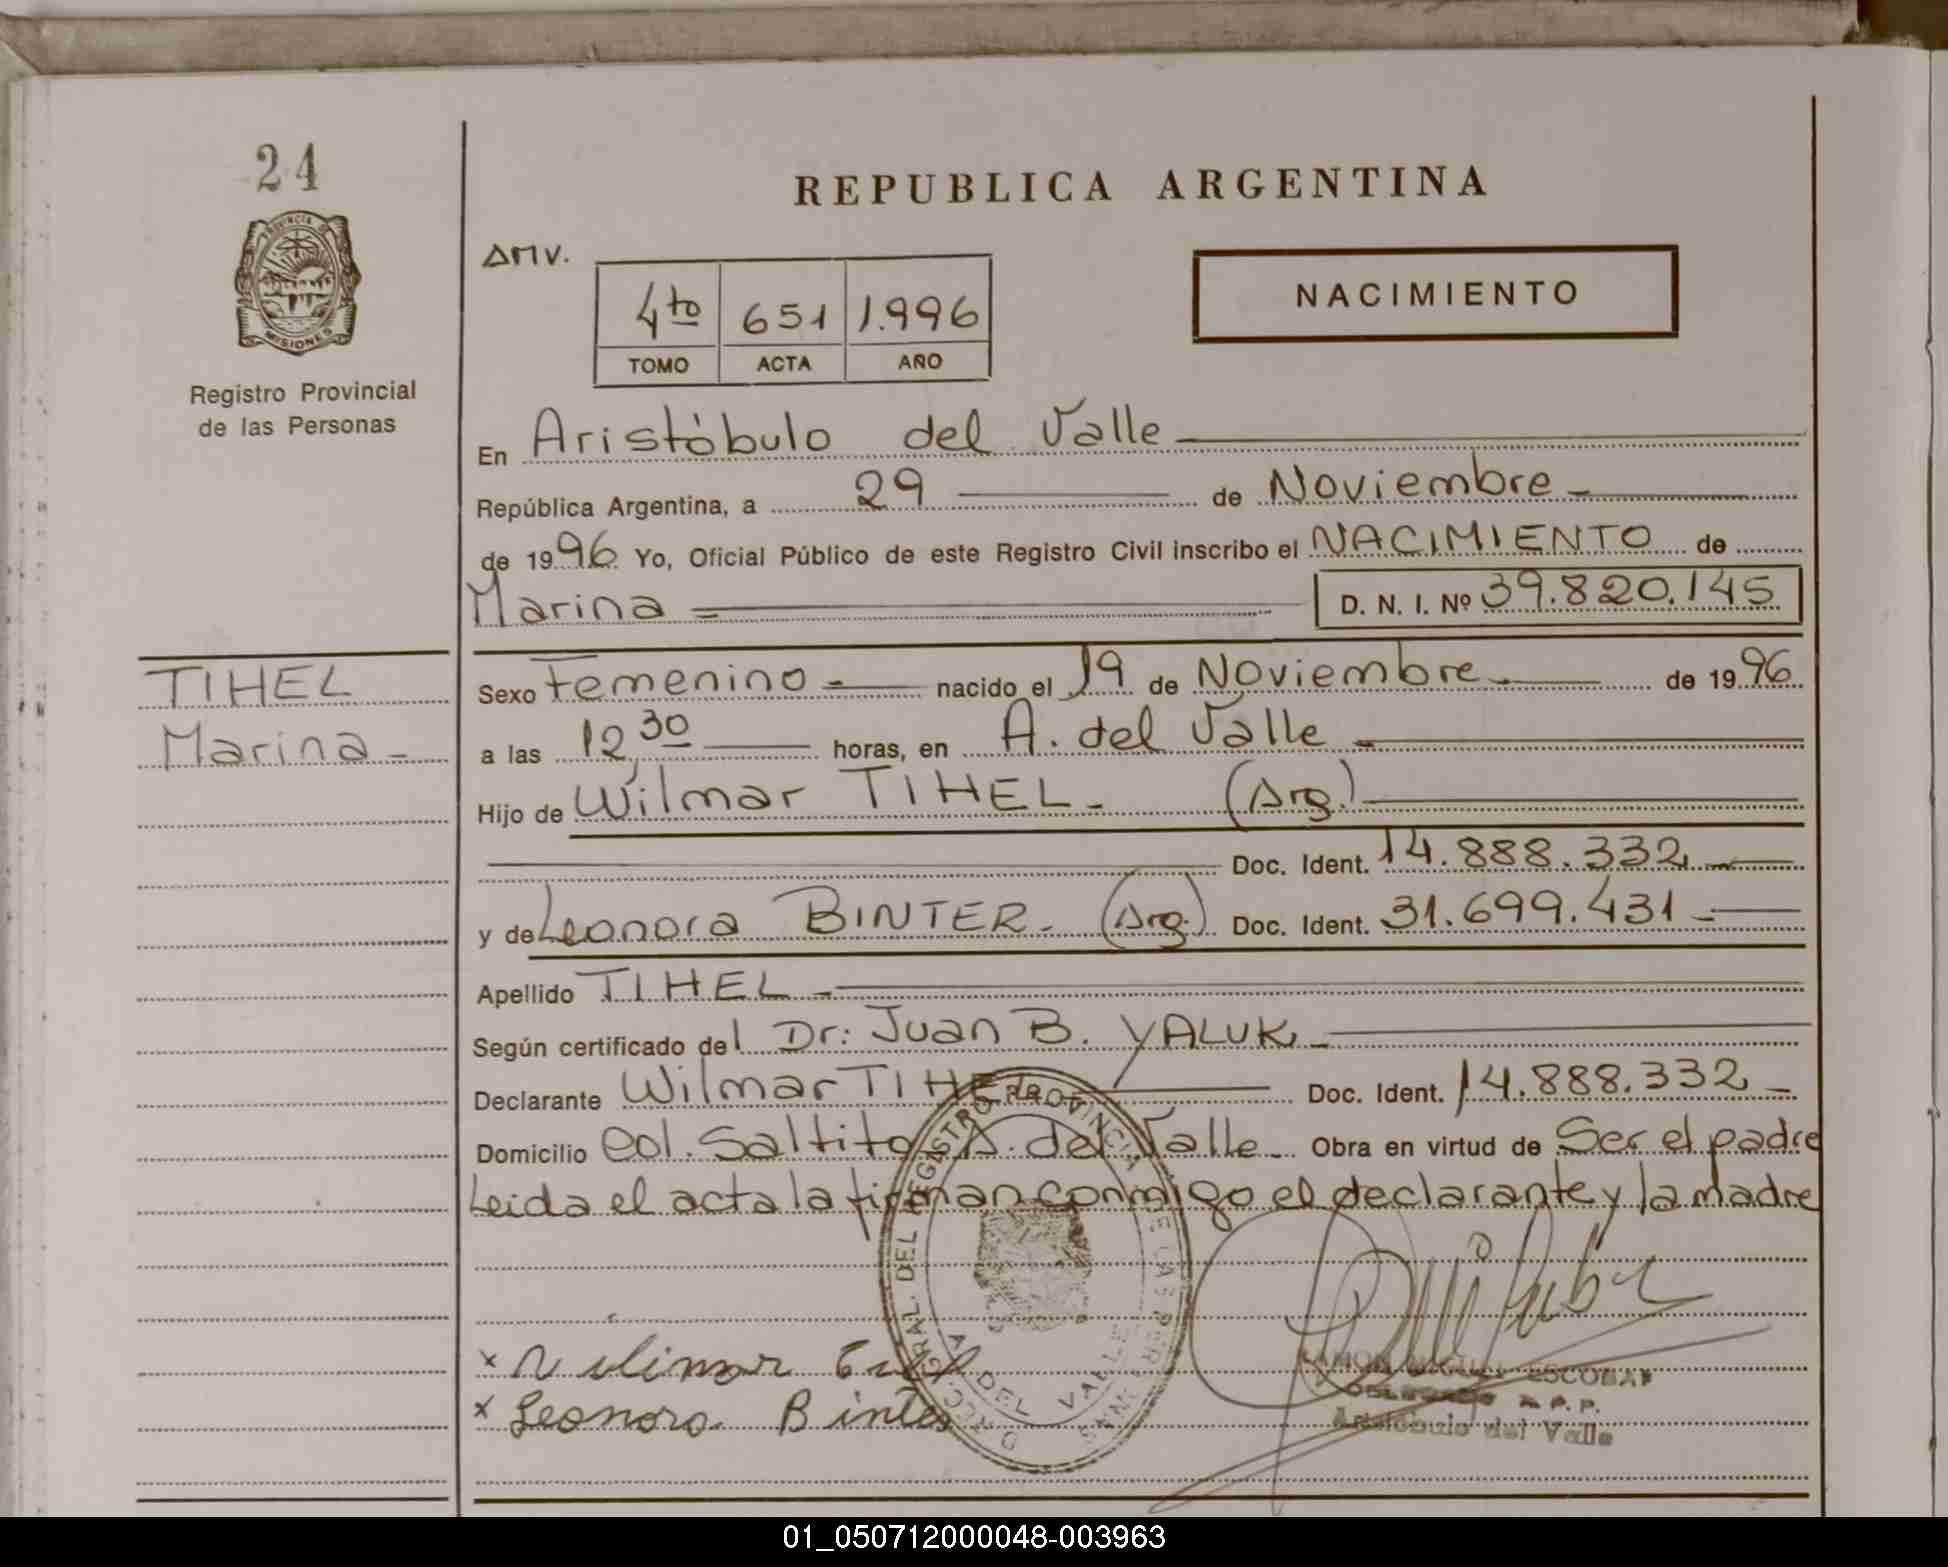 24
PROVINCIA DE
MISIONES
Registro Provincial
de las Personas
REPUBLICA ARGENTINA
AMV.
4to 651 1.996
TOMO ACTA AÑO
NACIMIENTO
En Aristóbulo del Valle
República Argentina, a 29 de Noviembre
de 1996 Yo, Oficial Público de este Registro Civil inscribo el NACIMIENTO de
Marina D. N. I. Nº 39.820.145
TIHEL
Marina
Sexo Femenino nacido el 19 de Noviembre de 1996
a las 12,30 horas, en A. del Valle
Hijo de Wilmar TIHEL (Arg.)
Doc. Ident. 14.888.332
y de Leonora BINTER (Arg.) Doc. Ident. 31.699.431
Apellido TIHEL
Según certificado del Dr: Juan B. YALUK
Declarante Wilmar TIHEL Doc. Ident. 14.888.332
Domicilio Col. Saltito A. del Valle Obra en virtud de Ser el padre
Leida el acta la firman conmigo el declarante y la madre
x Wilmar
x Leonora Binter
ESCOBAR
Aristóbulo del Valle
01_050712000048-003963